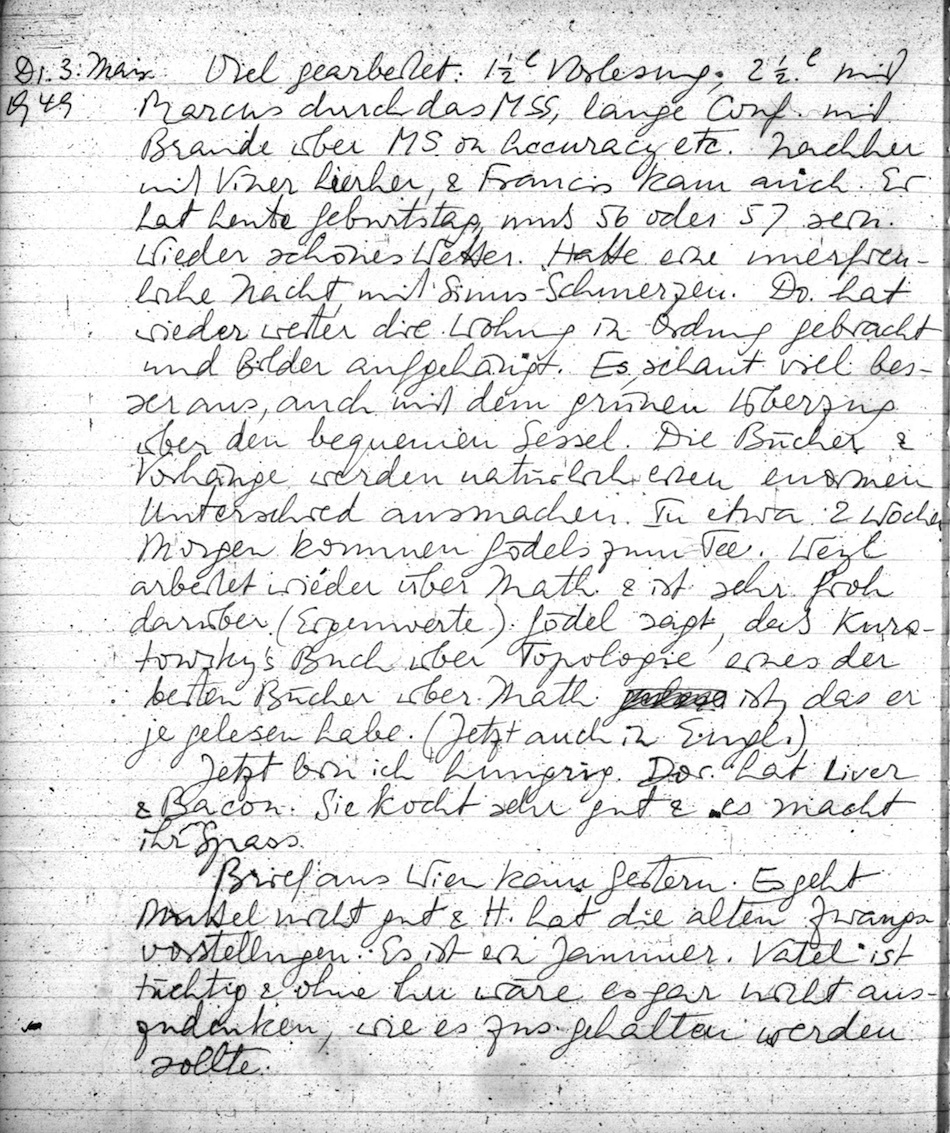 Di. 3. Mai Viel gearbeitet: 1½ʰ Vorlesung; 2½ʰ mit
1949 Marcus durch das MSS, lange Conf. mit
Brande über MS on Accuracy etc. Nachher
mit Viner hierher, & Francis kam auch. Er
hat heute Geburtstag, muß 56 oder 57 sein.
Wieder schönes Wetter. Hatte eine unerfreu-
liche Nacht mit Sinus-Schmerzen. Do. hat
wieder weiter die Wohnung in Ordnung gebracht
und Bilder aufgehängt. Es schaut viel bes-
ser aus, auch mit dem grünen Überzug
über den bequemen Sessel. Die Bücher &
Vorhänge werden natürlich einen enormen
Unterschied ausmachen. In etwa 2 Wochen
Morgen kommen Gödels zum Tee. Weyl
arbeitet wieder über Math & ist sehr froh
darüber (Eigenwerte). Gödel sagt, daß Kura-
towsky's Buch über Topologie eines der
besten Bücher über Math ist, das er
je gelesen habe. (Jetzt auch in Engl.)
Jetzt bin ich hungrig. Dor. hat Liver
& Bacon. Sie kocht sehr gut & es macht
ihr Spass.
Brief aus Wien kam gestern. Es geht
Muttel nicht gut & H. hat die alten Zwangs
vorstellungen. Es ist ein Jammer. Vatel ist
tüchtig & ohne ihn wäre es gar nicht aus-
zudenken, wie es zus. gehalten werden
sollte.